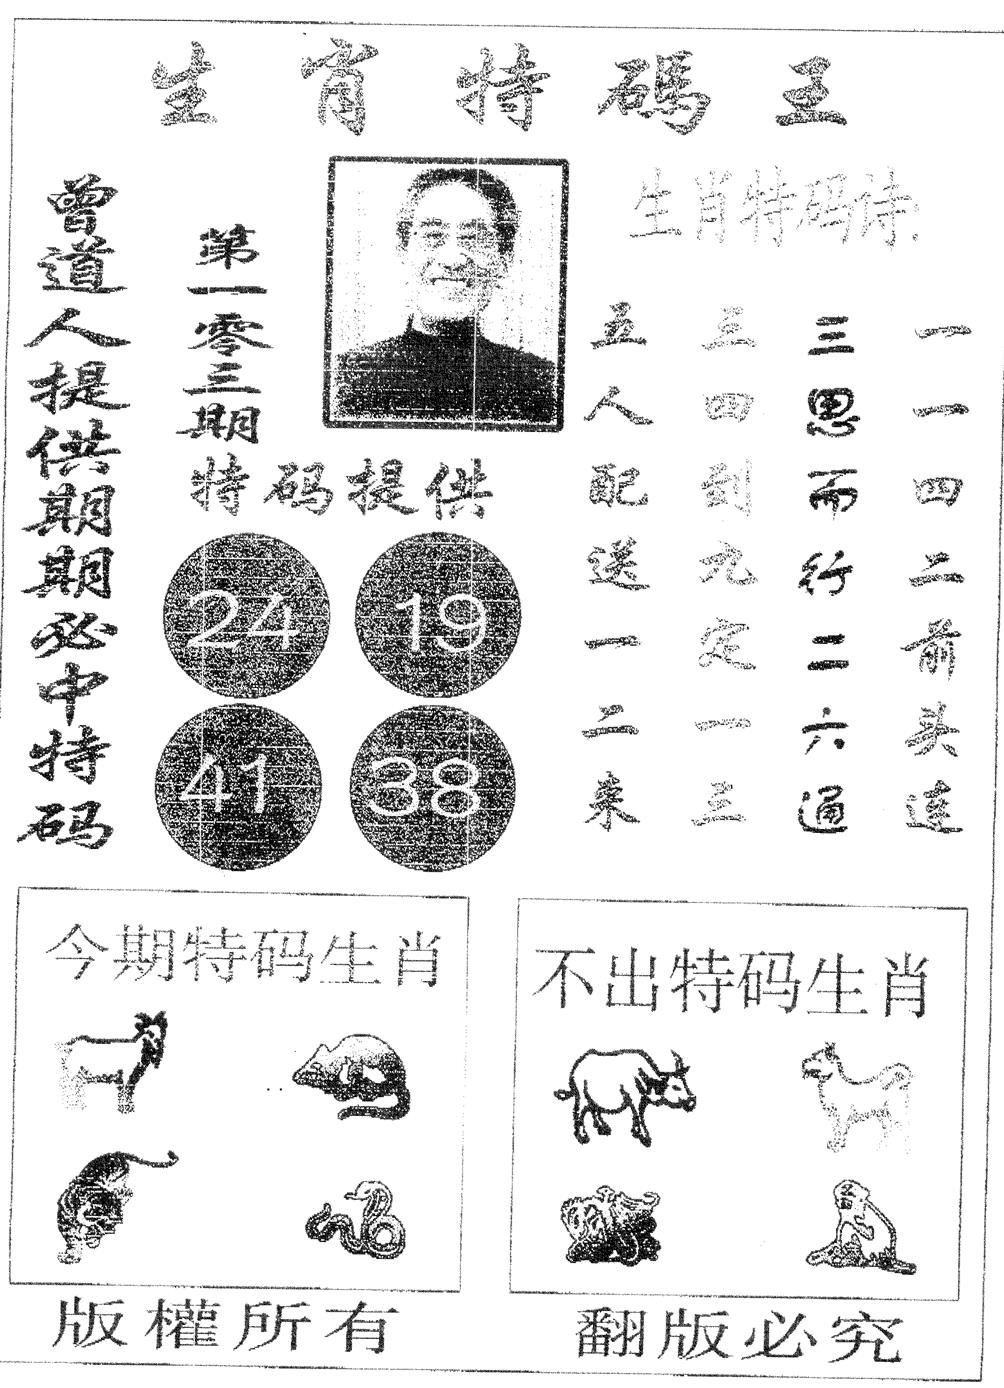 生肖特碼王
曾道人提供期期必中特码
第一零三期
特码提供
24 19
41 38
生肖特码诗:
一一四二前头连
三思而行二六通
三四到九定一三
五人配送一二来
今期特码生肖
不出特码生肖
版權所有
翻版必究